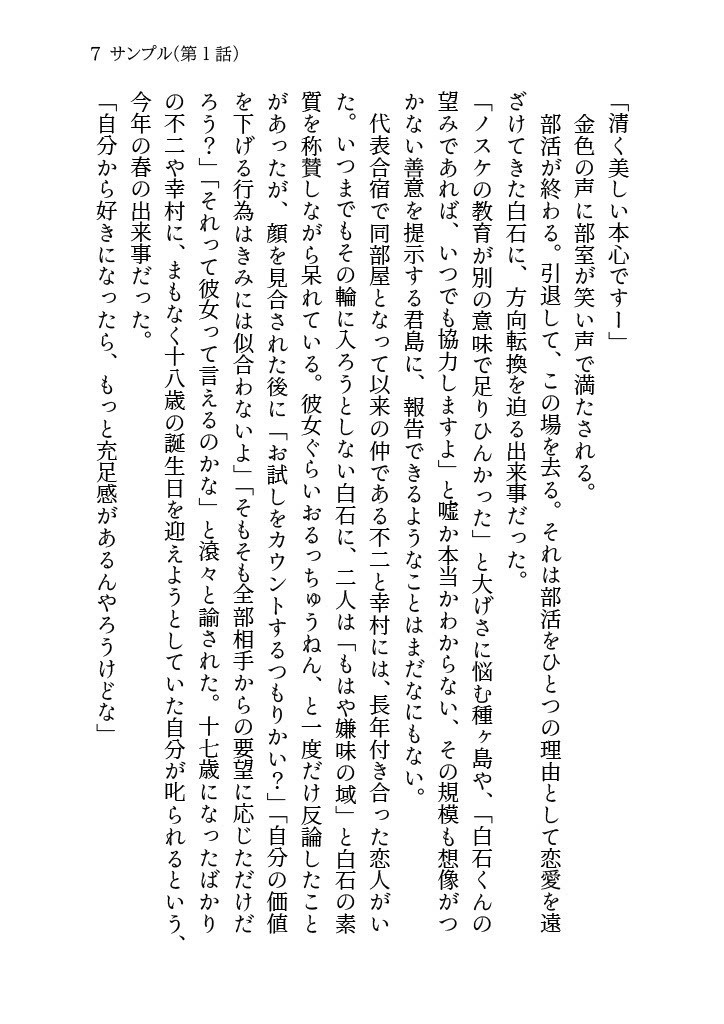 7 サンプル(第1話)
「清く美しい本心ですー」
　金色の声に部室が笑い声で満たされる。
　部活が終わる。引退して、この場を去る。それは部活をひとつの理由として恋愛を遠
ざけてきた白石に、方向転換を迫る出来事だった。
「ノスケの教育が別の意味で足りひんかった」と大げさに悩む種ヶ島や、「白石くんの
望みであれば、いつでも協力しますよ」と嘘か本当かわからない、その規模も想像がつ
かない善意を提示する君島に、報告できるようなことはまだなにもない。
　代表合宿で同部屋となって以来の仲である不二と幸村には、長年付き合った恋人がい
た。いつまでもその輪に入ろうとしない白石に、二人は「もはや嫌味の域」と白石の素
質を称賛しながら呆れている。彼女ぐらいおるっちゅうねん、と一度だけ反論したこと
があったが、顔を見合された後に「お試しをカウントするつもりかい？」「自分の価値
を下げる行為はきみには似合わないよ」「そもそも全部相手からの要望に応じただけだ
ろう？」「それって彼女って言えるのかな」と滾々と諭された。十七歳になったばかり
の不二や幸村に、まもなく十八歳の誕生日を迎えようとしていた自分が叱られるという、
今年の春の出来事だった。
「自分から好きになったら、もっと充足感があるんやろうけどな」